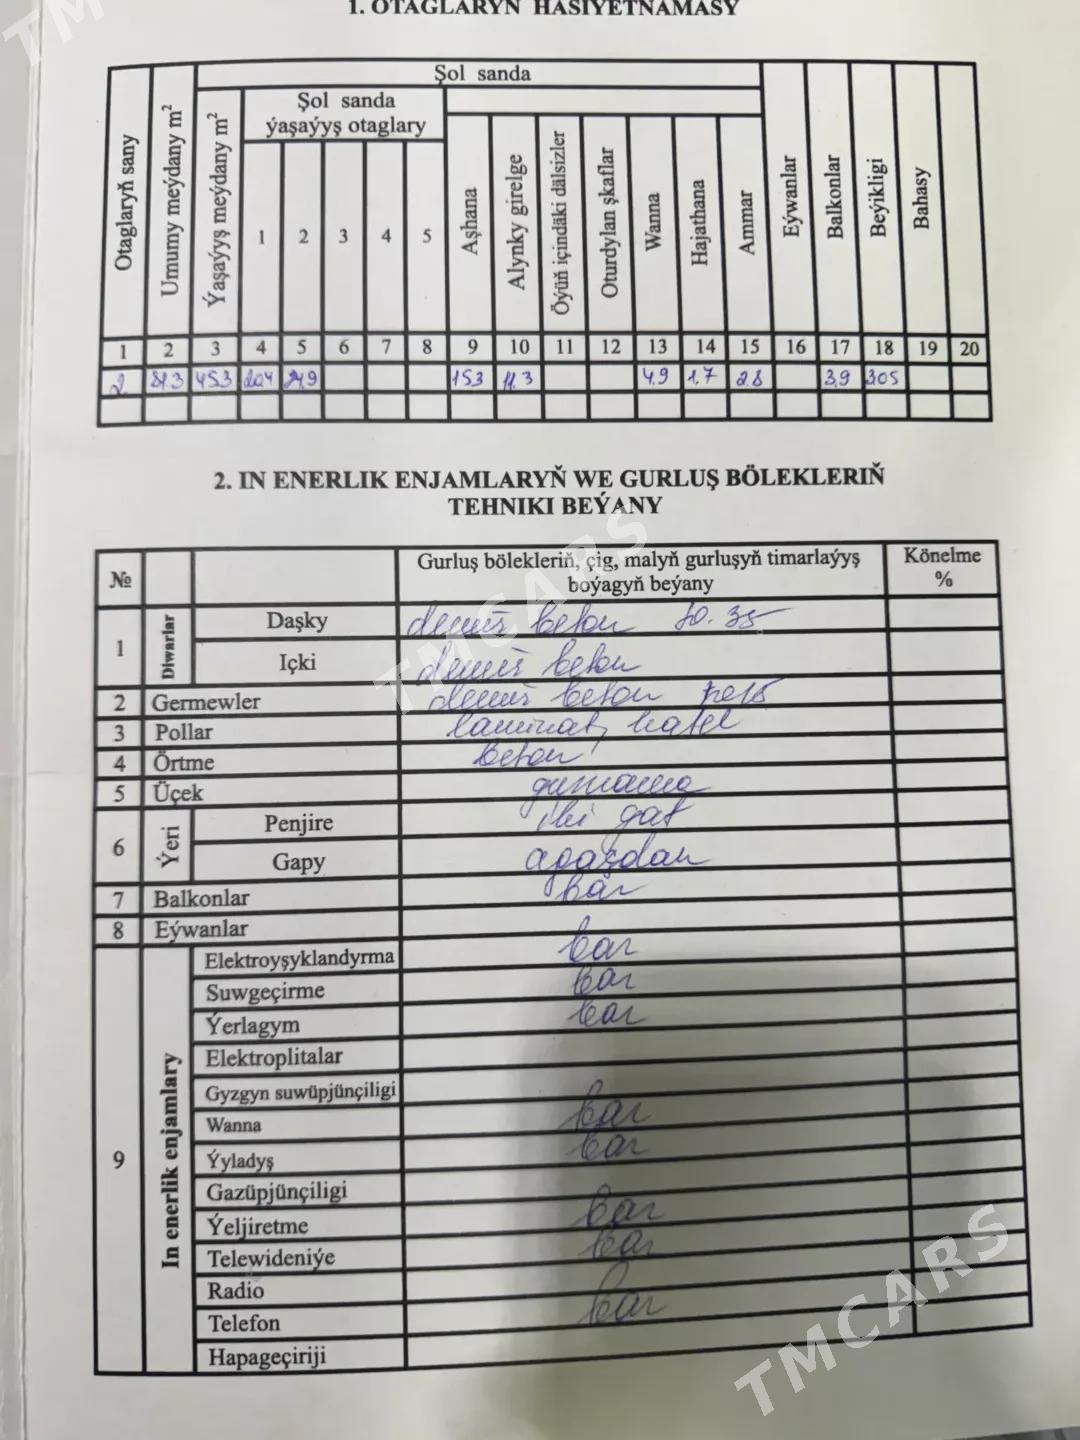 1. OTAGLARYŇ HÄSIÝETNAMASY
Otaglaryň sany
Umumy meýdany m²
Şol sanda
Ýaşaýyş meýdany m²
Şol sanda
ýaşaýyş otaglary
1 2 3 4 5
Aşhana
Alynky girelge
Öýüň içindäki dälsizler
Oturdylan şkaflar
Wanna
Hajathana
Ammar
Eýwanlar
Balkonlar
Beýikligi
Bahasy
1 2 3 4 5 6 7 8 9 10 11 12 13 14 15 16 17 18 19 20
2 81.3 45.3 20.4 24.9 15.3 11.3 4.9 1.7 2.8 3.9 3.05
2. IN ENERLIK ENJAMLARYŇ WE GURLUŞ BÖLEKLERIŇ
TEHNIKI BEÝANY
№ Gurluş bölekleriň, çig, malyň gurluşyň timarlaýyş
boýagyň beýany
Könelme
%
1 Diwarlar Daşky demir beton
Içki demir beton
2 Germewler demir beton
3 Pollar laminat, kafel
4 Örtme beton
5 Üçek
6 Ýeri Penjire iki gat
Gapy agaşdan
7 Balkonlar bar
8 Eýwanlar
9 In enerlik enjamlary Elektroyşyklandyrma bar
Suwgeçirme bar
Ýerlagym bar
Elektroplitalar
Gyzgyn suwüpjünçiligi
Wanna bar
Ýyladyş bar
Gazüpjünçiligi
Ýeljiretme bar
Telewideniýe bar
Radio
Telefon bar
Hapageçiriji
TMCARS
TMCARS
TMCARS